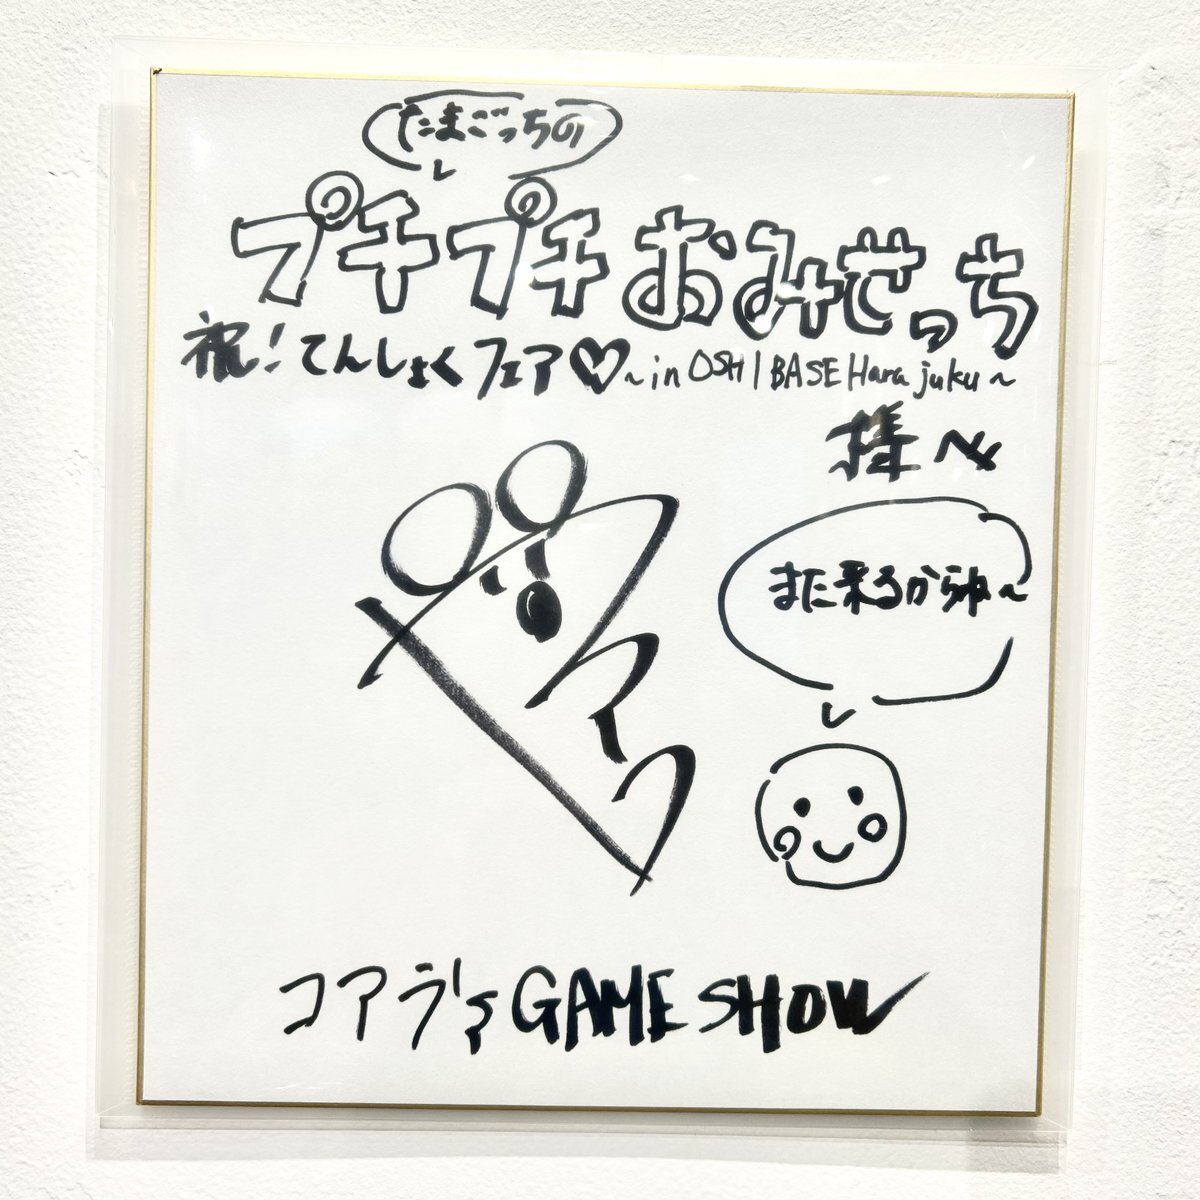 たまごっちの
プチプチおみせっち
祝！てんしょくフェア♡～in OSHI BASE Harajuku～
様へ
また来るからね～
コアラ's GAME SHOW